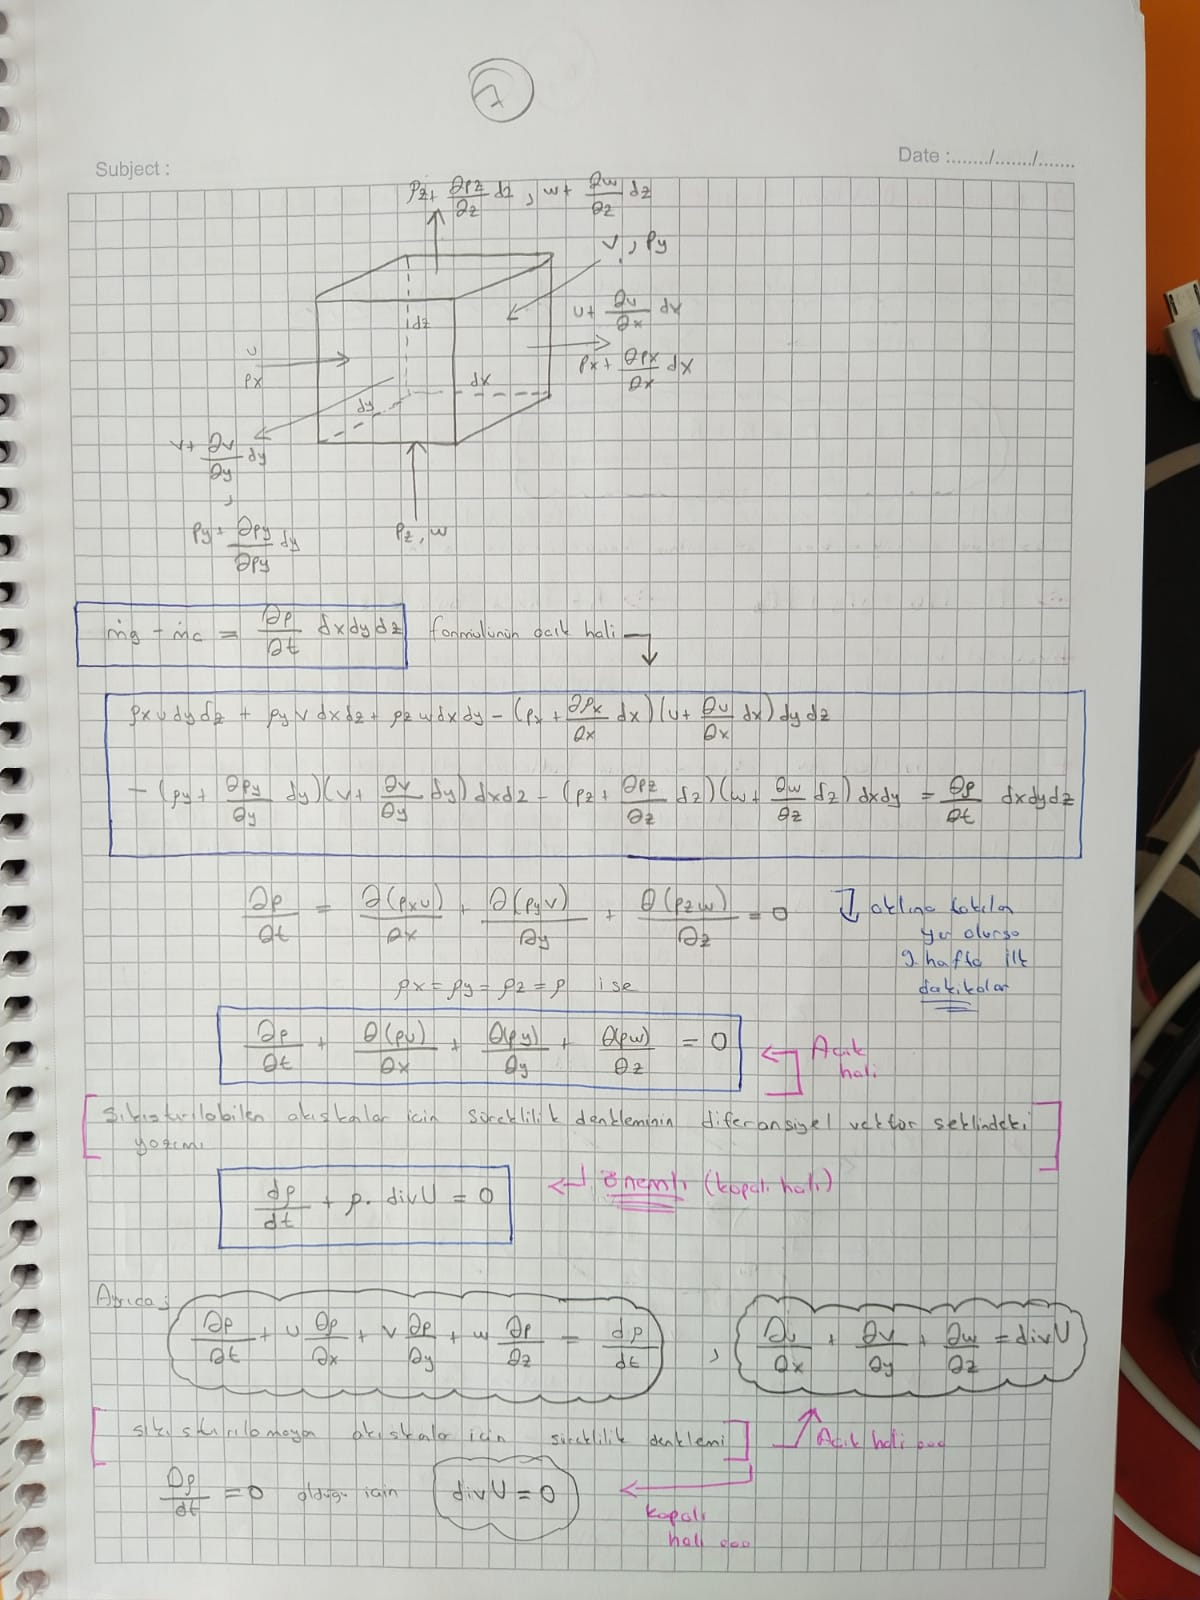 7
Subject :
Date :......./......./.......
ρz + ∂ρz/∂z dz , w + ∂w/∂z dz
v , ρy
dz
u + ∂u/∂x dx
u
ρx
dx
ρx + ∂ρx/∂x dx
dy
v + ∂v/∂y dy
,
ρy + ∂ρy/∂ρy dy
ρz , w
ṁg - ṁc = ∂ρ/∂t dxdydz formülünün açık hali
ρx u dydz + ρy v dxdz + ρz w dxdy - (ρx + ∂ρx/∂x dx)(u + ∂u/∂x dx) dydz
- (ρy + ∂ρy/∂y dy)(v + ∂v/∂y dy) dxdz - (ρz + ∂ρz/∂z dz)(w + ∂w/∂z dz) dxdy = ∂ρ/∂t dxdydz
∂ρ/∂t = ∂(ρxu)/∂x + ∂(ρyv)/∂y + ∂(ρzw)/∂z = 0
aklına takılan
yer olursa
9. hafta ilk
dakikalar
ρx = ρy = ρz = ρ ise
∂ρ/∂t + ∂(ρu)/∂x + ∂(ρy)/∂y + ∂(ρw)/∂z = 0
Açık
hali
Sıkıştırılabilen akışkalar için süreklilik denkleminin diferansiyel vektör şeklindeki
yazımı
dρ/dt + ρ. divU = 0
Önemli (kapalı hali)
Ayrıca ;
∂ρ/∂t + u ∂ρ/∂x + v ∂ρ/∂y + w ∂ρ/∂z = dρ/dt , ∂u/∂x + ∂v/∂y + ∂w/∂z = divU
sıkıştırılamayan akışkala için süreklilik denklemi
Açık hali
Dρ/dt = 0 olduğu için divU = 0
kapalı
hali